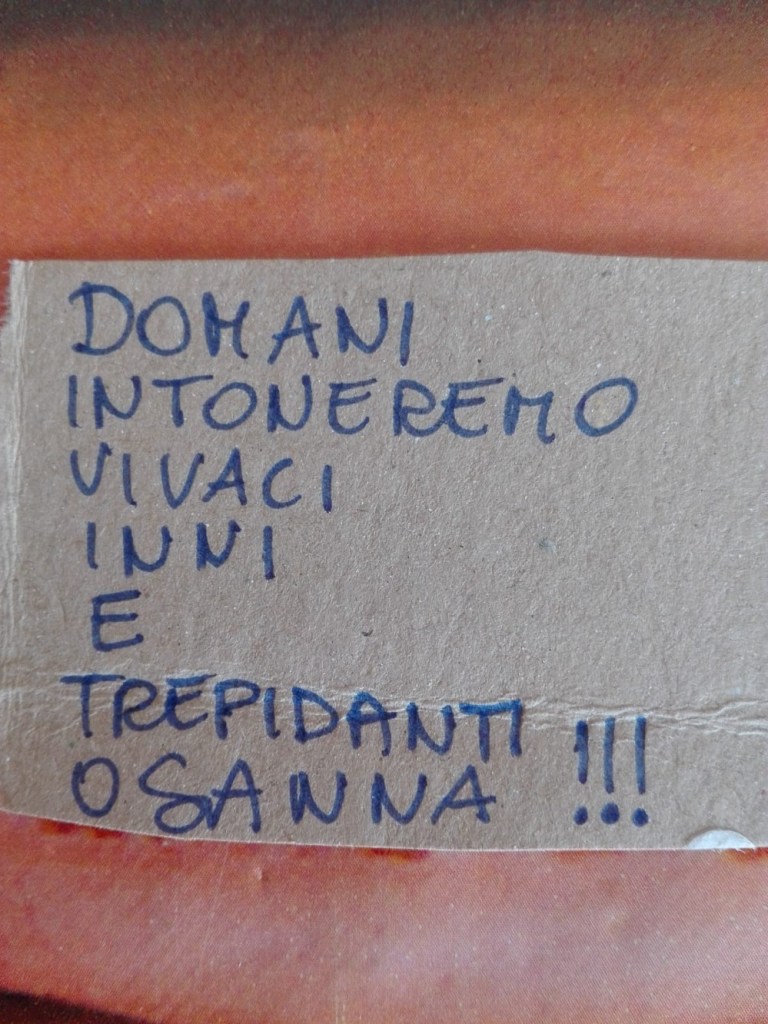 DOMANI
INTONEREMO
VIVACI
INNI
E
TREPIDANTI
OSANNA !!!